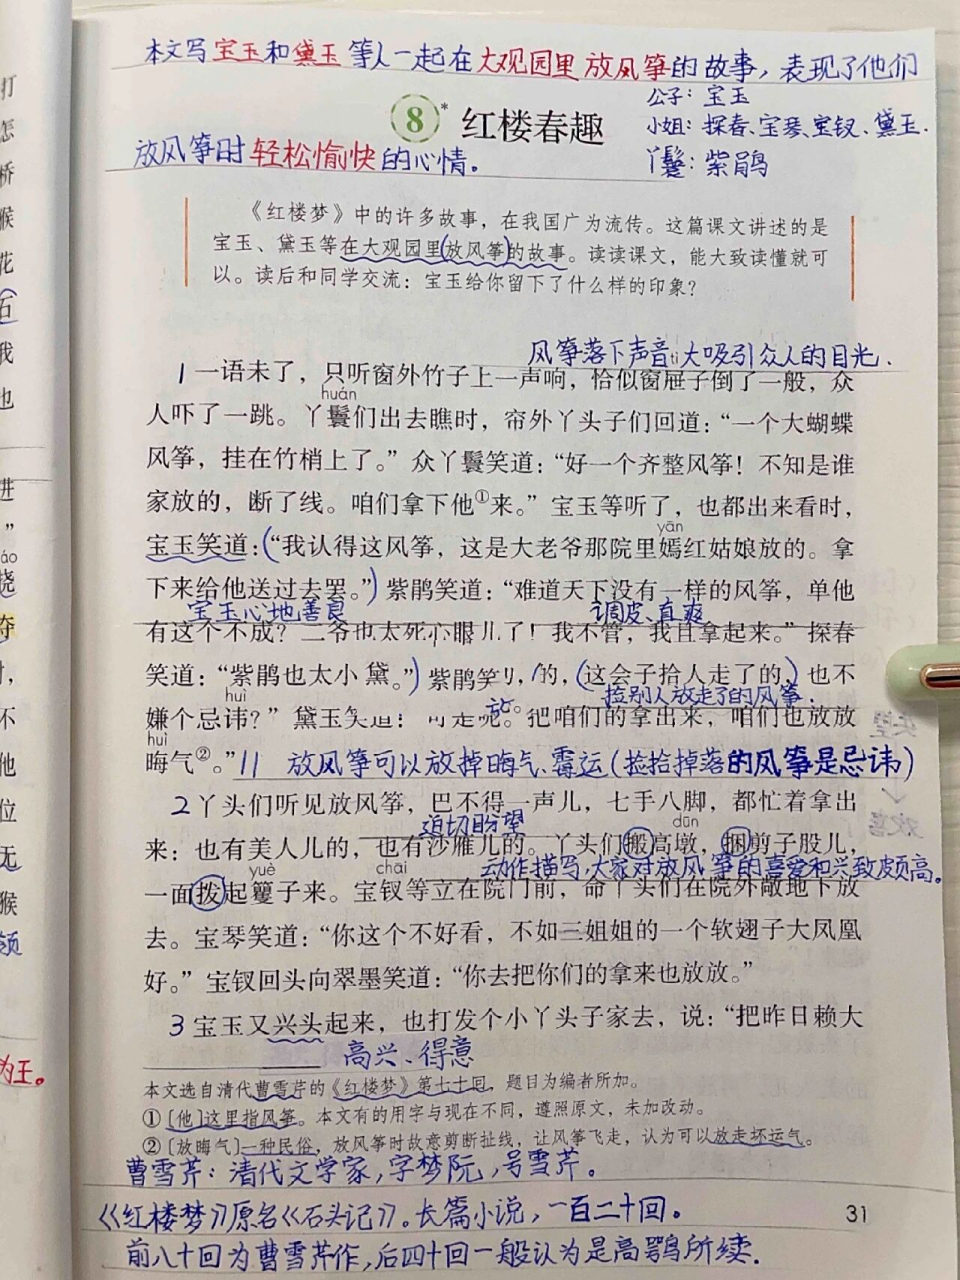 本文写宝玉和黛玉等人一起在大观园里放风筝的故事，表现了他们
公子：宝玉
8* 红楼春趣
小姐：探春、宝琴、宝钗、黛玉.
放风筝时轻松愉快的心情。
丫鬟：紫鹃
《红楼梦》中的许多故事，在我国广为流传。这篇课文讲述的是
宝玉、黛玉等在大观园里(放风筝)的故事。读读课文，能大致读懂就可
以。读后和同学交流：宝玉给你留下了什么样的印象？
风筝落下声音大吸引众人的目光.
tì
1一语未了，只听窗外竹子上一声响，恰似窗屉子倒了一般，众
huán
人吓了一跳。丫鬟们出去瞧时，帘外丫头子们回道：“一个大蝴蝶
风筝，挂在竹梢上了。”众丫鬟笑道：“好一个齐整风筝！不知是谁
家放的，断了线。咱们拿下他①来。”宝玉等听了，也都出来看时，
yān
宝玉笑道：(“我认得这风筝，这是大老爷那院里嫣红姑娘放的。拿
下来给他送过去罢。”)紫鹃笑道：“难道天下没有一样的风筝，单他
宝玉心地善良 调皮、直爽
有这个不成？二爷也太死心眼儿了！我不管，我且拿起来。”探春
笑道：“紫鹃也太小 的，(这会子拾人走了的，)也不
huì
捡别人放走了的风筝.
嫌个忌讳？”黛玉笑道： 把咱们的拿出来，咱们也放放
huì
晦气②。”11 放风筝可以放掉晦气、霉运(捡拾掉落的风筝是忌讳)
2丫头们听见放风筝，巴不得一声儿，七手八脚，都忙着拿出
迫切盼望
dūn
来：也有美人儿的，也有沙雁儿的。丫头们搬高墩，捆剪子股儿，
动作描写，大家对放风筝的喜爱和兴致颇高。
yuè chāi
一面拨起籰子来。宝钗等立在院门前，命丫头们在院外敞地下放
去。宝琴笑道：“你这个不好看，不如三姐姐的一个软翅子大凤凰
好。”宝钗回头向翠墨笑道：“你去把你们的拿来也放放。”
3宝玉又兴头起来，也打发个小丫头子家去，说：“把昨日赖大
高兴、得意
本文选自清代曹雪芹的《红楼梦》第七十回，题目为编者所加。
①[他]这里指风筝。本文有的用字与现在不同，遵照原文，未加改动。
②[放晦气]一种民俗，放风筝时故意剪断扯线，让风筝飞走，认为可以放走坏运气。
曹雪芹：清代文学家，字梦阮，号雪芹。
《红楼梦》原名《石头记》。长篇小说，一百二十回。
31
前八十回为曹雪芹作，后四十回一般认为是高鹗所续.